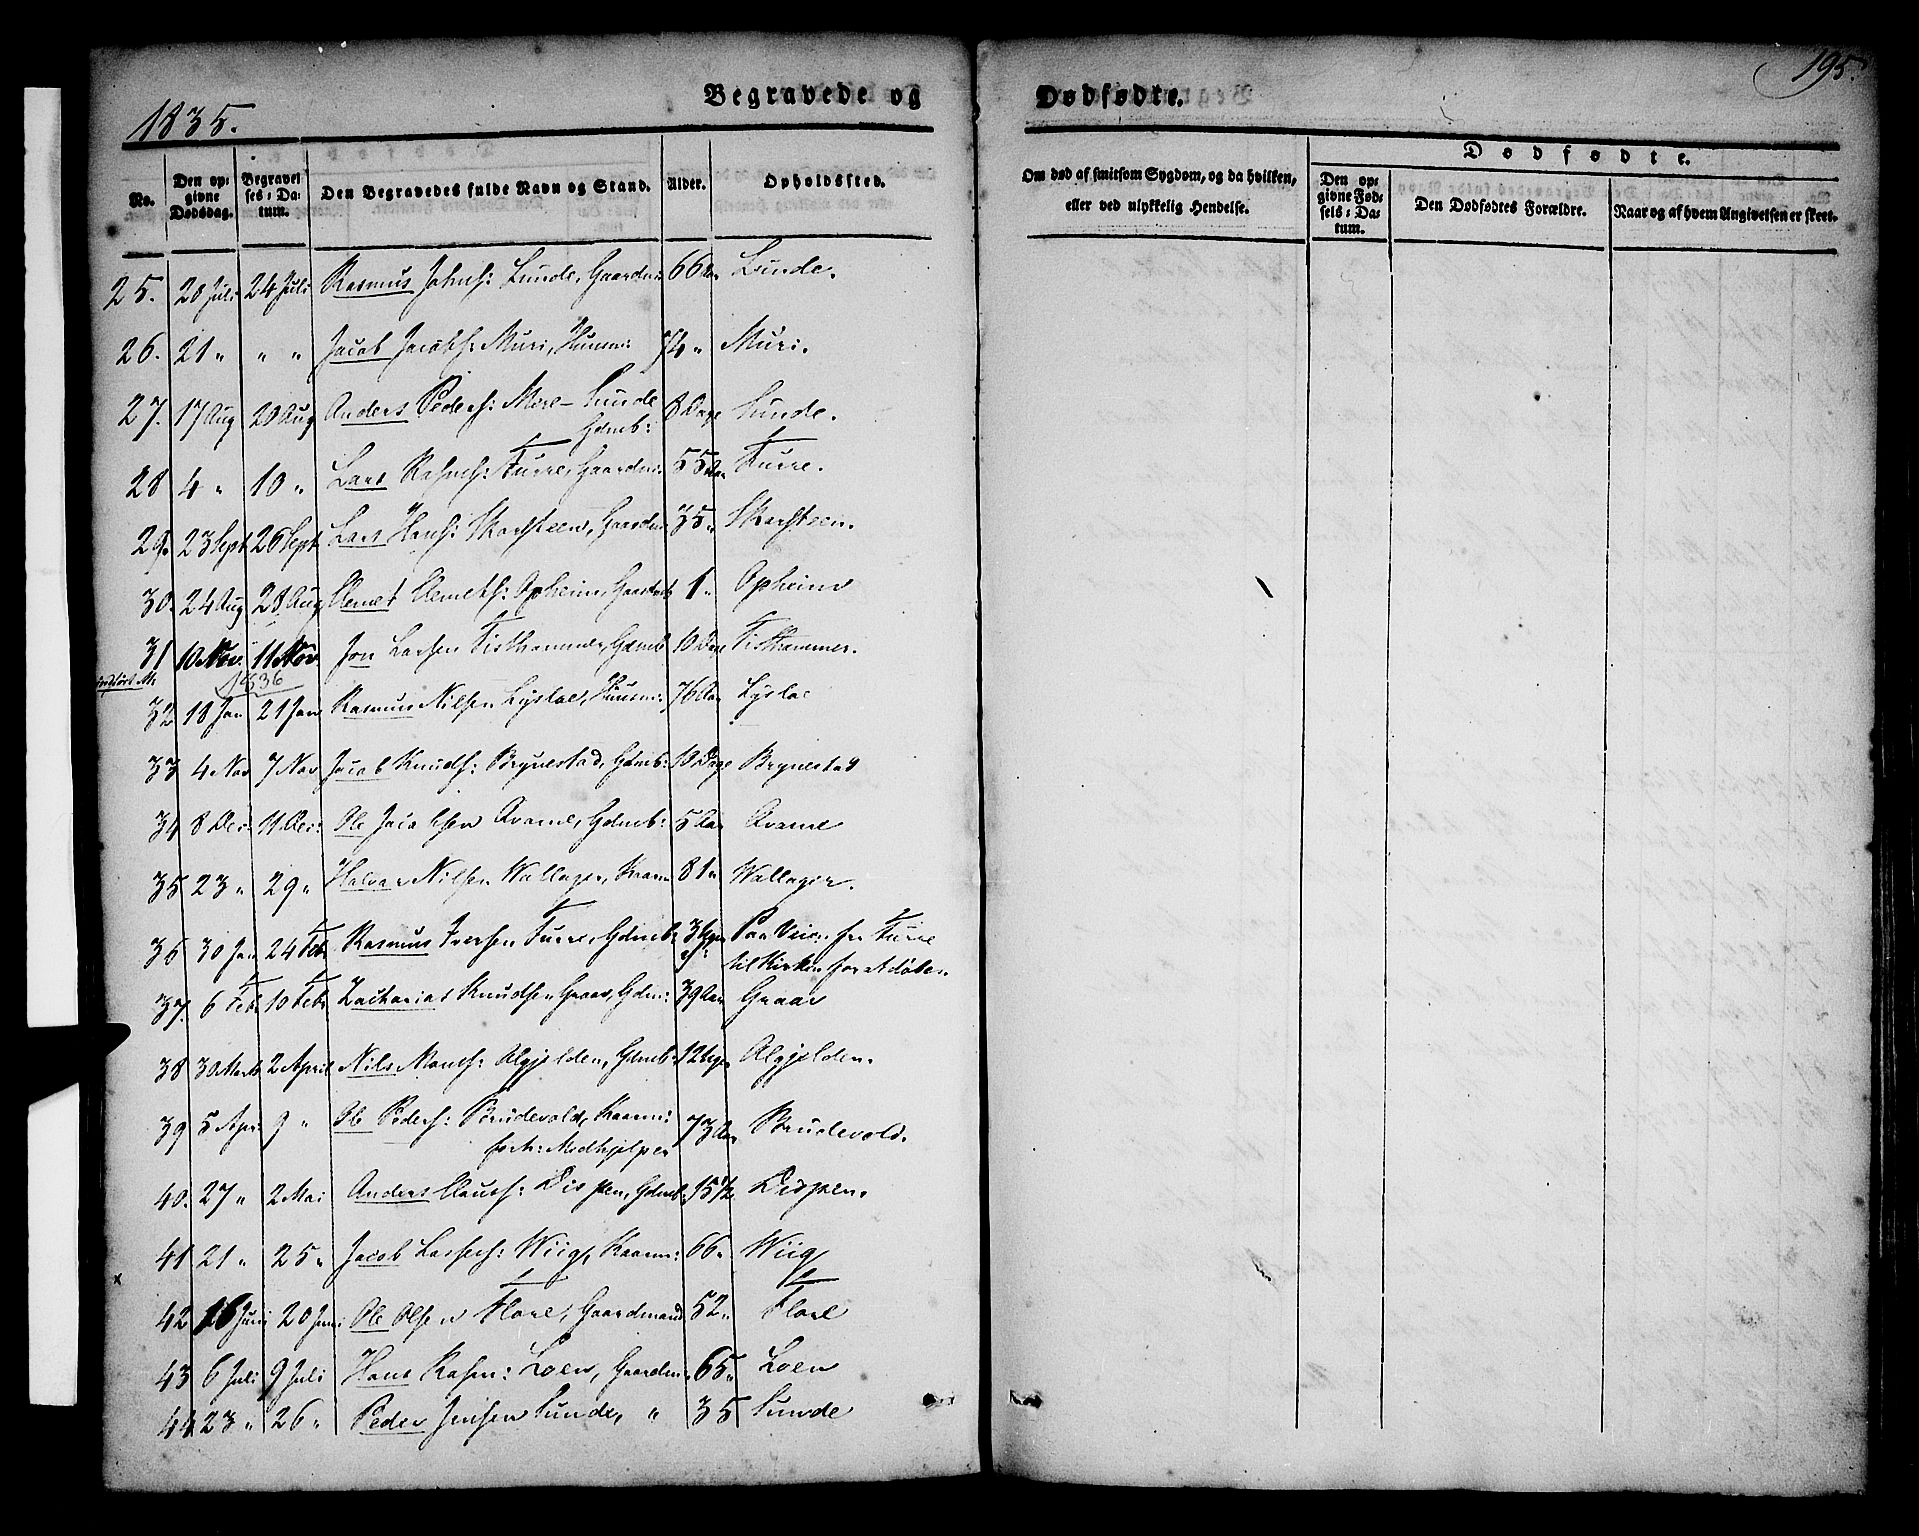 195.
1835.
Begravede og Dødfødte.
No. Den opgivne Dødsdag. Begravelses-Datum. Den Begravedes fulde Navn og Stand. Alder. Opholdssted.
Om død af smitsom Sygdom, og da hvilken, eller ved ulykkelig Hendelse.
Dødfødte.
Den opgivne Fødsels-Datum. Den Dødfødtes Forældre. Naar og af hvem Angivelsen er skeet.
25. 20 Juli 24 Juli Rasmus Johns: Lunde, Gaardm: 66 Aar Lunde.
26. 21 " " " Jacob Jacobs: Muri, Huusm: 74 " Muri.
27. 17 Aug 20 Aug Anders Peders: Mere-Sunde Gdmb: 8 Dage Sunde.
28 4 " 10 " Lars Rasms: Furre, Gaardm: 55 Aar Furre.
29. 23 Sept 26 Sept Lars Hans: Skarsteen, Gaardm 35 " Skarsteen.
30. 24 Aug 28 Aug Clemet Clemets: Opheim, Gaardmb 1 " Opheim
31 10 Nov. 11 Nov. Jon Larsen Tisthammer, Gdmb 10 Dage Tisthammer.
1836
32 18 Jan 21 Jan Rasmus Nilsen Lysloe, Huusm: 76 Aar Lysloe
33 4 Nov 7 Nov Jacob Knuds: Brynestad, Gdmb: 18 Dage Brynestad
34 8 Dec: 11 Dec: Ole Jacobsen Qvame, Gdmb: 5 Aar Qvame
35 23 " 29 " Halvar Nilsen Wallager, Kaarm 81 " Wallager.
36 30 Jan 24 Feb: Rasmus Iversen Furre, Gdmb: 3 Uger Paa Veien fra Furre
til Kirken for at døbes.
37. 6 Feb: 10 Feb: Zacharias Knudsen Graav, Gdm: 39 Aar Graav
38 30 Marts 2 April Nils Mons: Olgjelden, Gdmb: 12 Uger Olgjelden.
39 5 Apr: 9 " Ole Peders: Brudevold, Kaarm: 73 Aar Brudevold.
forh: Medhjelper
40. 27 " 2 Mai Anders Claus: Dispen, Gdmb: 15 1/2 Dispen.
41 21 " 25 " Jacob Lasses: Wiig, Kaarm: 66 " Wiig
42 16 Juni 20 Juni Ole Olsen Floie, Gaardmand 52 " Floie
43 6 Juli 9 Juli Hans Rasm: Loen, Gaardm: 65 " Loen
44 23 " 26 " Peder Jensen Sunde, " 35 Sunde